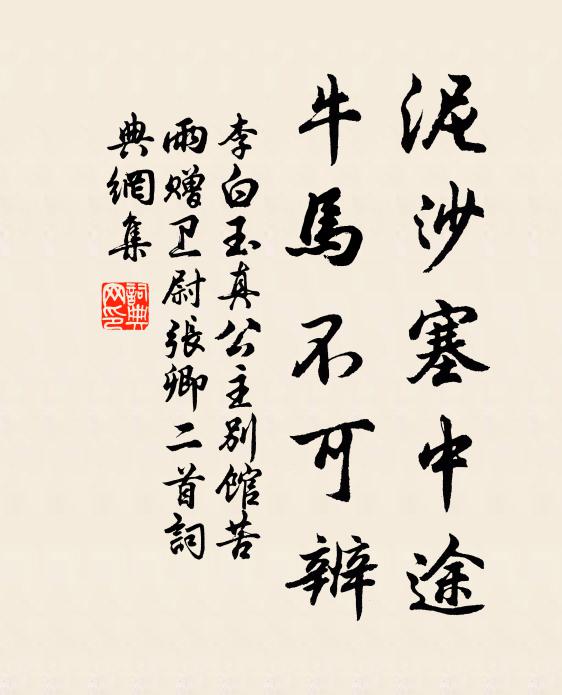 泥沙塞中途
牛馬不可辨
李白玉真公主別館苦
雨赠卫尉張卿二首詞
典網集
詞典
网印